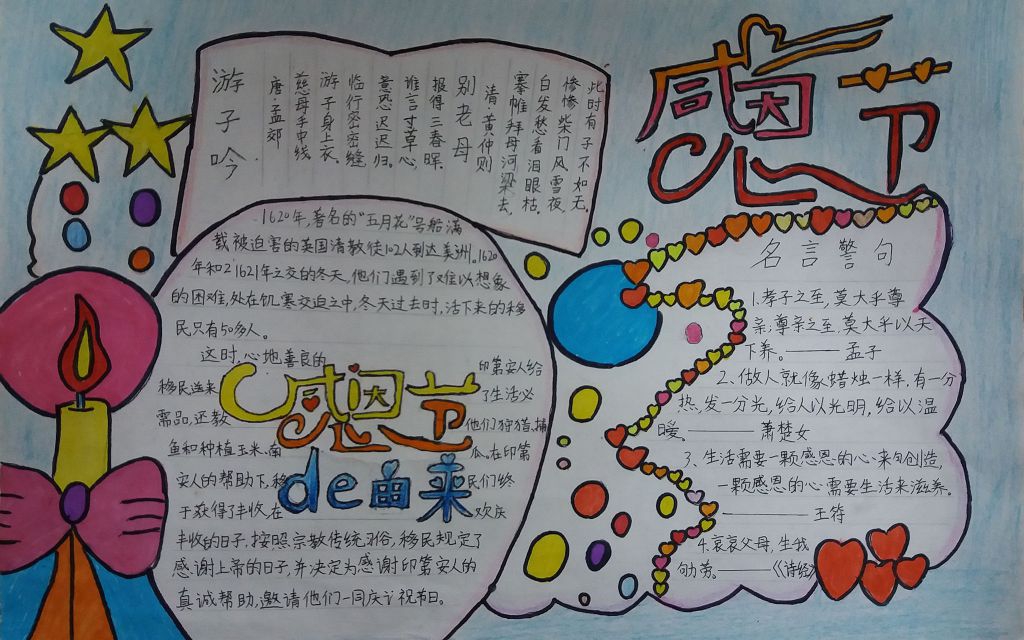 游子吟
唐·孟郊
慈母手中线
游子身上衣
临行密密缝
意恐迟迟归。
谁言寸草心
报得三春晖
别老母
清 黄仲则
寨帷拜母河梁去,
白发愁看泪眼枯。
惨惨柴门风雪夜,
此时有子不如无。
感恩节
1620年,著名的"五月花"号船满
载被迫害的英国清教徒102人到达美洲。1620
年和21621年之交的冬天,他们遇到了难以想象
的困难,处在饥寒交迫之中,冬天过去时,活下来的移
民只有50多人。
这时,心地善良的印第安人给
移民送来了生活必
需品,还教他们狩猎、捕
鱼和种植玉米、南瓜。在印第
安人的帮助下,移民们终
于获得了丰收,在欢庆
丰收的日子,按照宗教传统习俗,移民规定了
感谢上帝的日子,并决定为感谢印第安人的
真诚帮助,邀请他们一同庆祝节日。
感恩节
de由来
名言警句
1.孝子之至,莫大乎尊
亲;尊亲之至,莫大乎以天
下养。——孟子
2、做人就像蜡烛一样,有一分
热,发一分光,给人以光明,给以温
暖。——萧楚女
3、生活需要一颗感恩的心来创造,
一颗感恩的心需要生活来滋养。
——王符
4.哀哀父母,生我
劬劳。——《诗经》